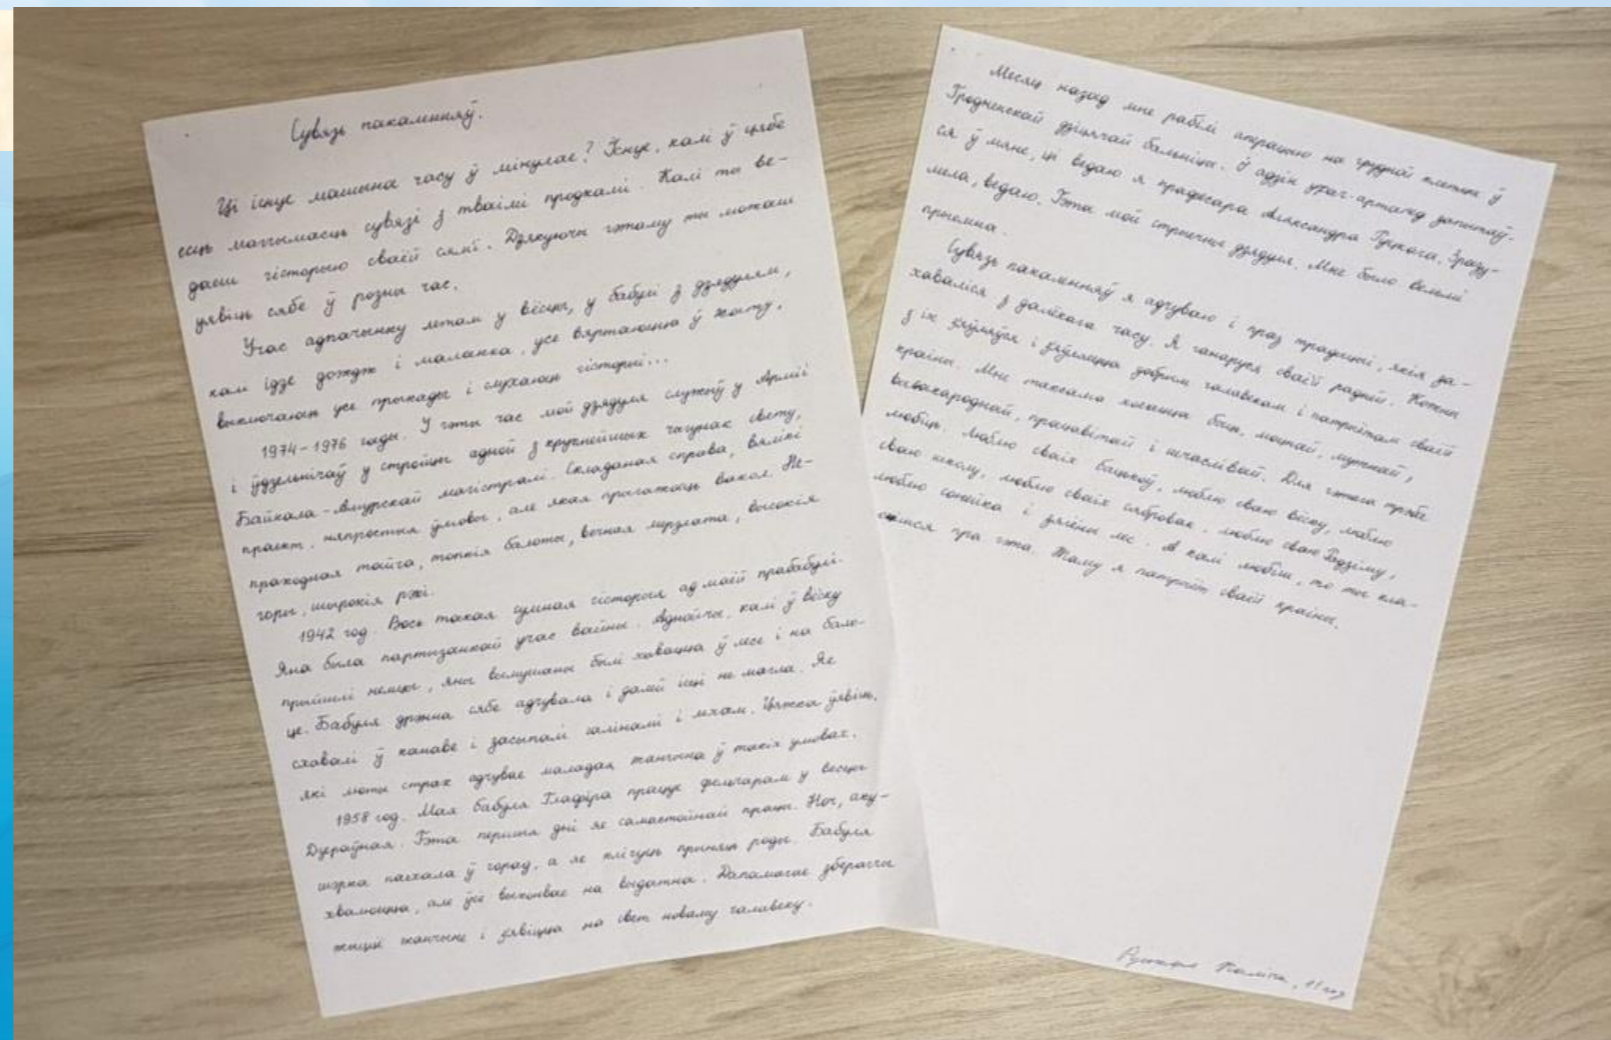 Сувязь пакаленняў.
Ці існуе машына часу ў мінулае? Існуе, калі ў цябе
есць магчымасць сувязі з тваімі продкамі. Калі ты ве-
даеш гісторыю сваёй сям'і. Дзякуючы гэтаму ты можаш
уявіць сябе ў розны час.
Учас адпачынку летам у вёсцы, у бабулі з дзядулям,
калі ідзе дождж і маланка, усе вяртаюцца ў хату,
выключаюць усе прыклады і слухаюць гісторыі...
1974-1976 гады. У гэты час мой дзядуля служыў у Арміі
і ўдзельнічаў у стройцы адной з крупнейшых чыгунак свету,
Байкала-Амурскай магістралі. Складаная справа, вялікі
праект, няпростыя ўмовы, але якая прыгажосць вакол. Не-
праходная тайга, топкія балоты, вечная мерзлата, высокія
горы, шырокія рэкі.
1942 год. Вось такая сумная гісторыя ад маёй прабабулі.
Яна была партызанкай учас вайны. Аднойчы, калі ў вёску
прыйшлі немцы, яны вымушаны былі хавацца ў лесе і на бало-
це. Бабуля дрэнна сябе адчувала і далей ісці не магла. Яе
схавалі ў канаве і засыпалі галінамі і мхам. Цяжка ўявіць,
які люты страх адчувае маладая жанчына ў такіх умовах.
1958 год. Мая бабуля Глафіра працуе фельчарам у весцы
Гэта першыя дні яе самастойнай працы. Ноч, аку-
шэрка паехала ў горад, а яе клічуць прыняць роды. Бабуля
хвалюецца, але ўсё выконвае на выдатна. Дапамагае зберагчы
жыццё жанчыне і з'явіцца на свет новаму чалавеку.
Месяц назад мне рабілі аперацыю на груднай клетцы ў
Гродненскай дзіцячай бальніцы. І адзін урач-артапед запытаў-
ся ў мяне, ці ведаю я прафесара Аляксандра Зразу-
мела, ведаю. Гэта мой стрыечны дзядуля. Мне было вельмі
прыемна.
Сувязь пакаленняў я адчуваю і праз традыцыі, якія за-
хаваліся з далёкага часу. Я ганаруся сваёй раднёй. Кожны
з іх з'яўляўся і з'яўляецца добрым чалавекам і патрыётам сваёй
краіны. Мне таксама хочацца быць моцнай, мужнай,
высакароднай, працавітай і шчаслівай. Для гэтага трэба
любіць. Люблю сваіх бацькоў, люблю сваю вёску, люблю
сваю школу, люблю сваіх сябровак, люблю сваю Радзіму,
люблю сонейка і зялёны лес. А калі любіш, то ты кла-
пра гэта. Таму я патрыёт сваёй краіны.
11 год